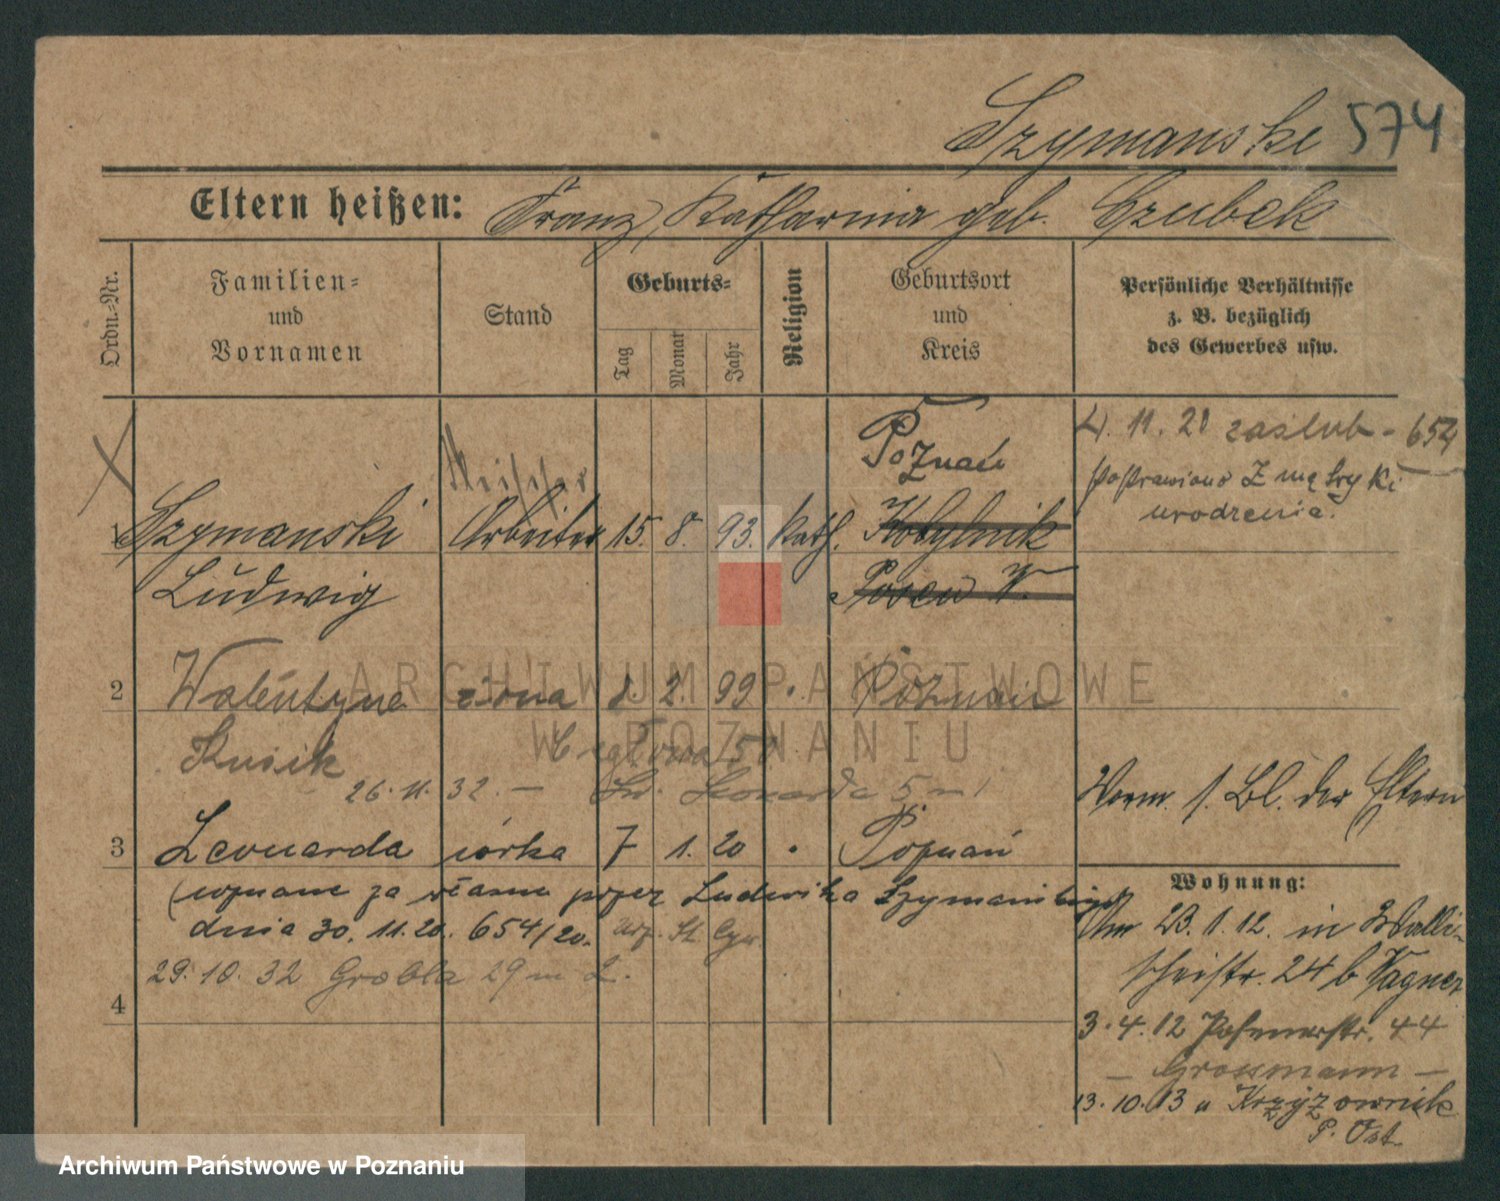 Szymanski 574
Eltern heißen: Franz, Katharina geb. Czubek
Ordn.-Nr.
Familien-
und
Vornamen
Stand
Geburts-
Tag
Monat
Jahr
Religion
Geburtsort
und
Kreis
Persönliche Verhältnisse
z. B. bezüglich
des Gewerbes usw.
Poznań
4. 11. 20 zaślub - 654
Z metryki
urodzenia.
1 Szymanski Arbeiter 15. 8. 93. Kath. Kobylnik
Ludwig Posen W.
2 Walentyna żona 2. 99 Poznań
Kusik
26. 11. 32. — Leonarda 5 m 1
Verm. s. Bl. der Eltern
3 Leonarda córka 7 1. 20 Poznań
(uznane za własne przez Ludwika Szymańskiego
dnia 30. 11. 20. 654/20.
29. 10. 32 Grobla 29 m 2.
4
Wohnung:
Am 23. 1. 12. in Walli-
scheistr. 24 b Wagner
3. 4. 12 Posenerstr. 44
— Grossmann —
13. 10. 13 n Krzyżownik
P. Ost.
ARCHIWUM PAŃSTWOWE
W POZNANIU
Archiwum Państwowe w Poznaniu